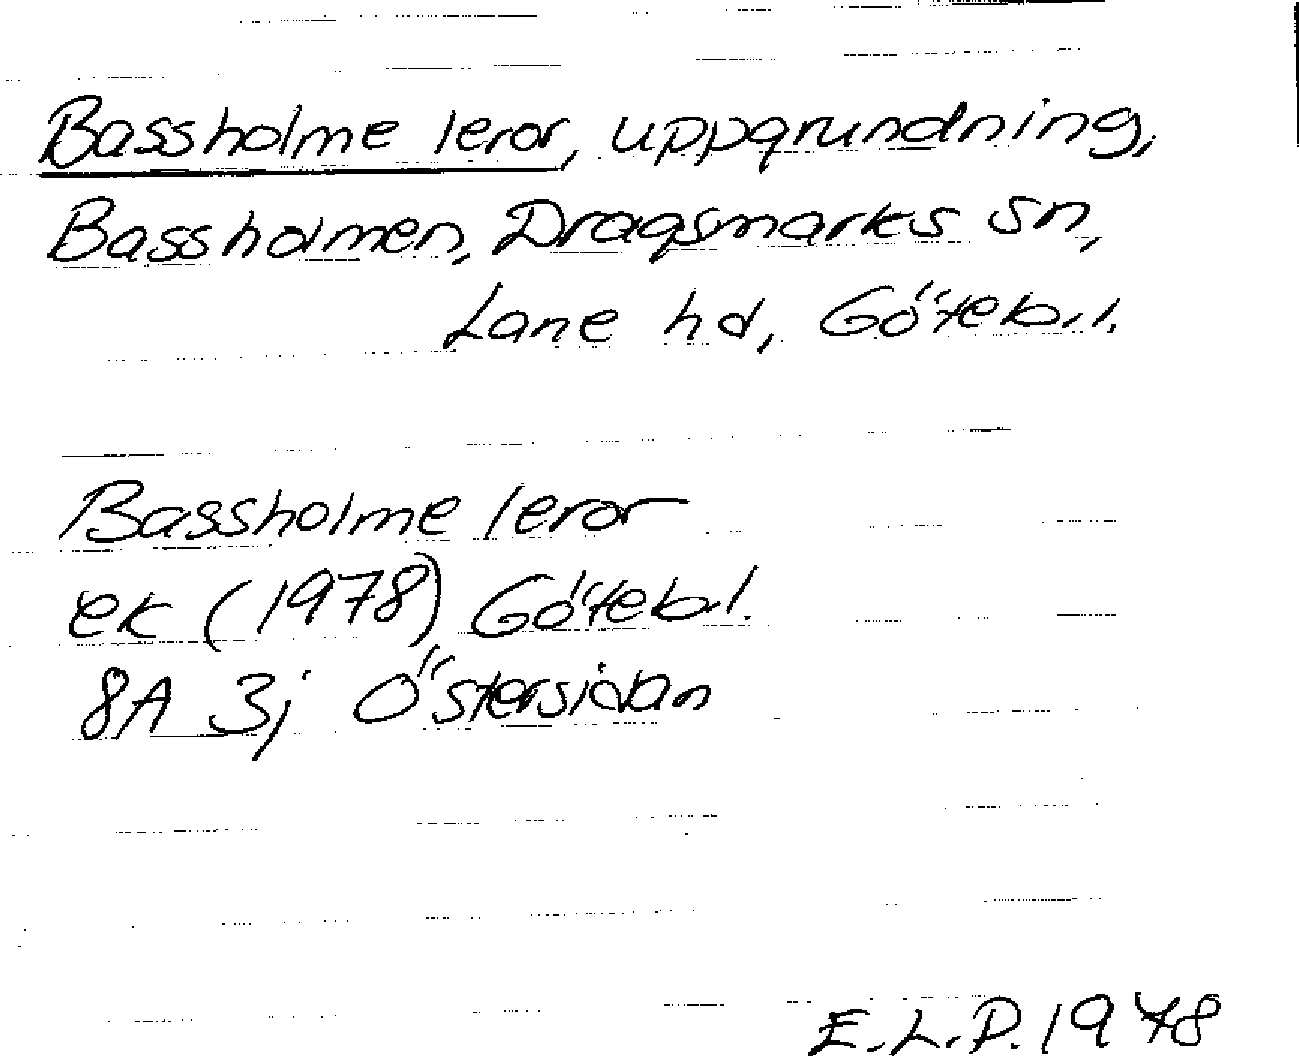 Bassholme leror, uppgrundning,
Bassholmen, Dragsmarks sn,
Lane hd, Göteb.l.
Bassholme leror
ek (1978) Göteb.l.
8A 3j Östersidan
E.L.P. 1978